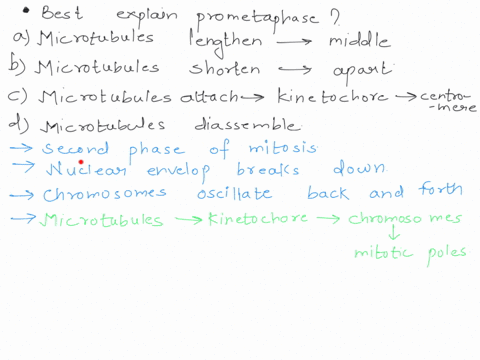 • Best explain prometaphase?
a) Microtubules lengthen → middle
b) Microtubules shorten ↔ apart
c) Microtubules attach → kinetochore → centro-
-mere
d) Microtubules diassemble
→ Second phase of mitosis
→ Nuclear envelop breaks down.
→ Chromosomes oscillate back and forth
→ Microtubules → Kinetochore → chromosomes
↓
mitotic poles